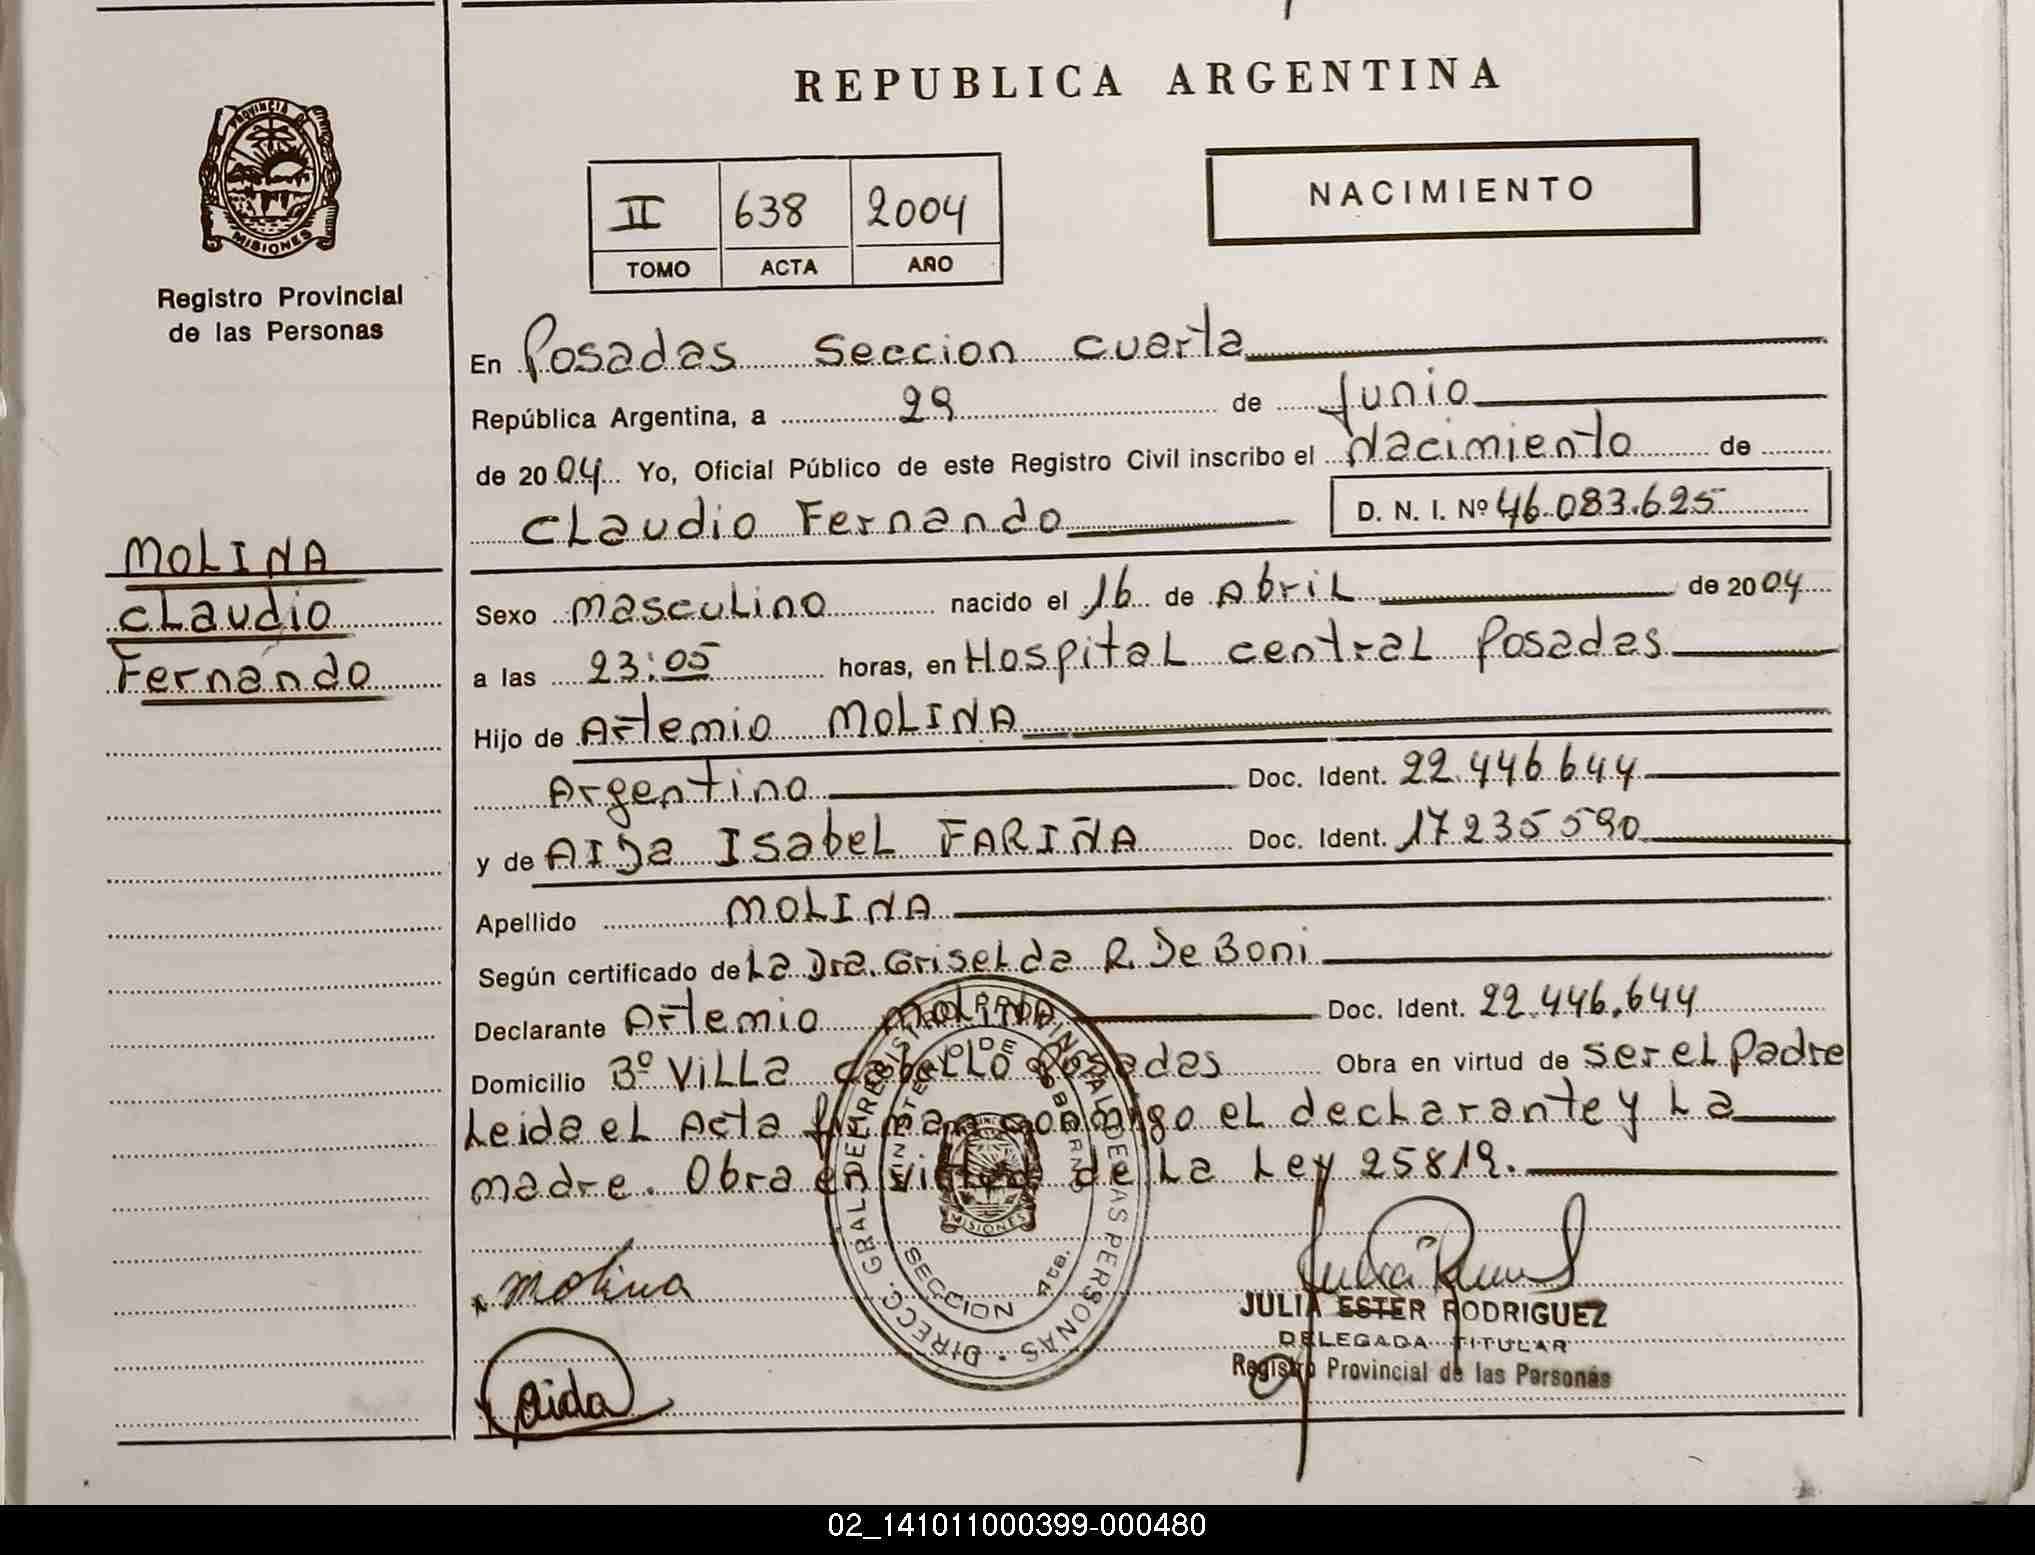 REPUBLICA ARGENTINA
PROVINCIA DE
MISIONES
Registro Provincial
de las Personas
NACIMIENTO
II 638 2004
TOMO ACTA AÑO
En Posadas Seccion cuarta
República Argentina, a 29 de Junio
de 2004 Yo, Oficial Público de este Registro Civil inscribo el Nacimiento de
Claudio Fernando D. N. I. Nº 46.083.625
MOLINA
Claudio
Fernando
Sexo masculino nacido el 16 de Abril de 2004
a las 23:05 horas, en Hospital central Posadas
Hijo de Artemio MOLINA
Argentino Doc. Ident. 22.446.644
y de AIDa Isabel FARIÑA Doc. Ident. 17235590
Apellido MOLINA
Según certificado de La Dra. Griselda R. De Boni
Declarante Artemio MOLINA Doc. Ident. 22.446.644
Domicilio Bº Villa cabello Posadas Obra en virtud de ser el Padre
Leida el Acta firman conmigo el declarante y La
madre. Obra en virtud de La Ley 25819.
DIRECC. GRAL DEL REGISTRO PROVINCIAL DE LAS PERSONAS
MINISTERIO DE GOBIERNO
MISIONES
SECCION 4ta.
Molina
Aida
JULIA ESTER RODRIGUEZ
DELEGADA TITULAR
Registro Provincial de las Personas
02_141011000399-000480